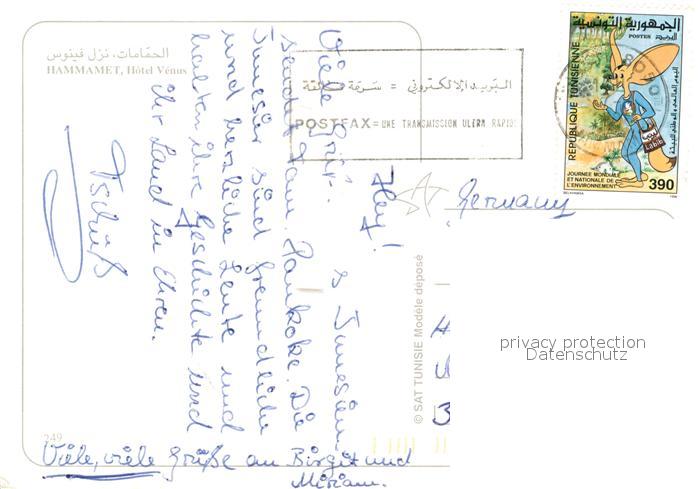 الحمّامات، نزل فينوس
HAMMAMET, Hôtel Vénus
البريد الإلكتروني = سرعة فائقة
POSTFAX = UNE TRANSMISSION ULTRA RAPIDE
الجمهورية التونسية
POSTES البريد
REPUBLIQUE TUNISIENNE
اليوم العالمي والوطني للبيئة
Labib
JOURNEE MONDIALE
ET NATIONALE DE
L'ENVIRONNEMENT
390
Hey!
Viele Grüße
Tunesien
sendet Fam. Die
Tunesier sind freundliche
und herzliche Leute und
halten ihre Geschichte und
ihr Land in Ehren.
Tschüß
Germany
© SAT TUNISIE Modèle déposé
privacy protection
Datenschutz
249
Viele, viele Grüße an Birgit und
Miriam.